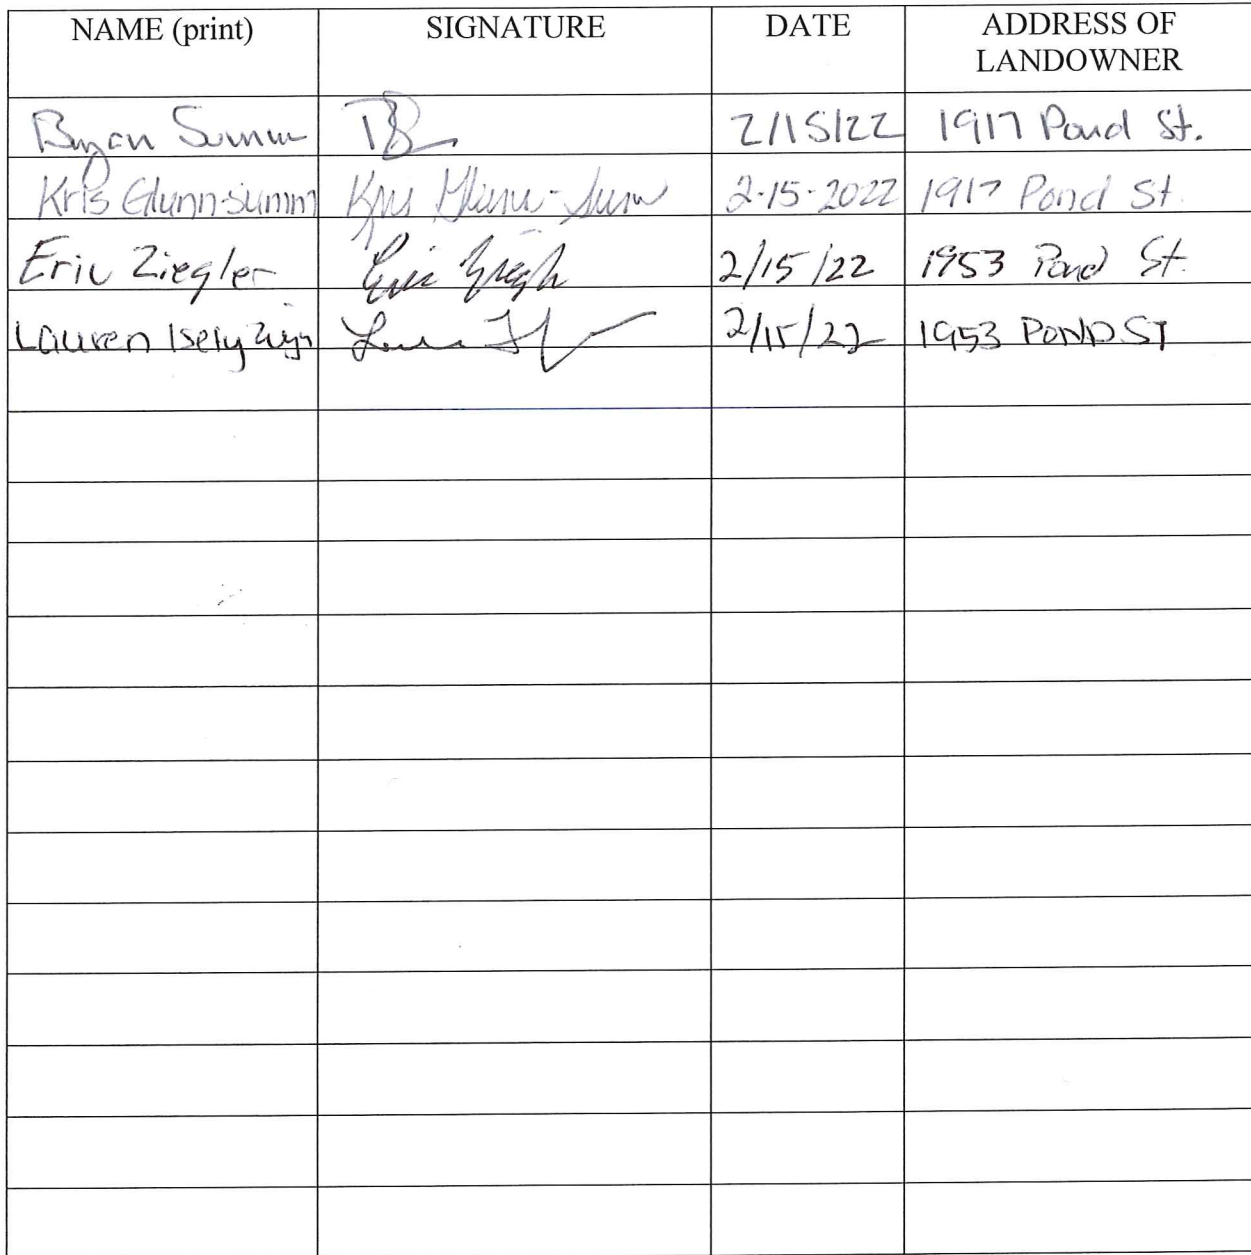 NAME (print) SIGNATURE DATE ADDRESS OF
LANDOWNER
Bryan Summ 2/15/22 1917 Pond St.
Kris Glunn-Summ Kris Glunn-Summ 2-15-2022 1917 Pond St.
Eric Ziegler Eric Ziegler 2/15/22 1953 Pond St.
Lauren Isely 2/15/22 1953 POND ST